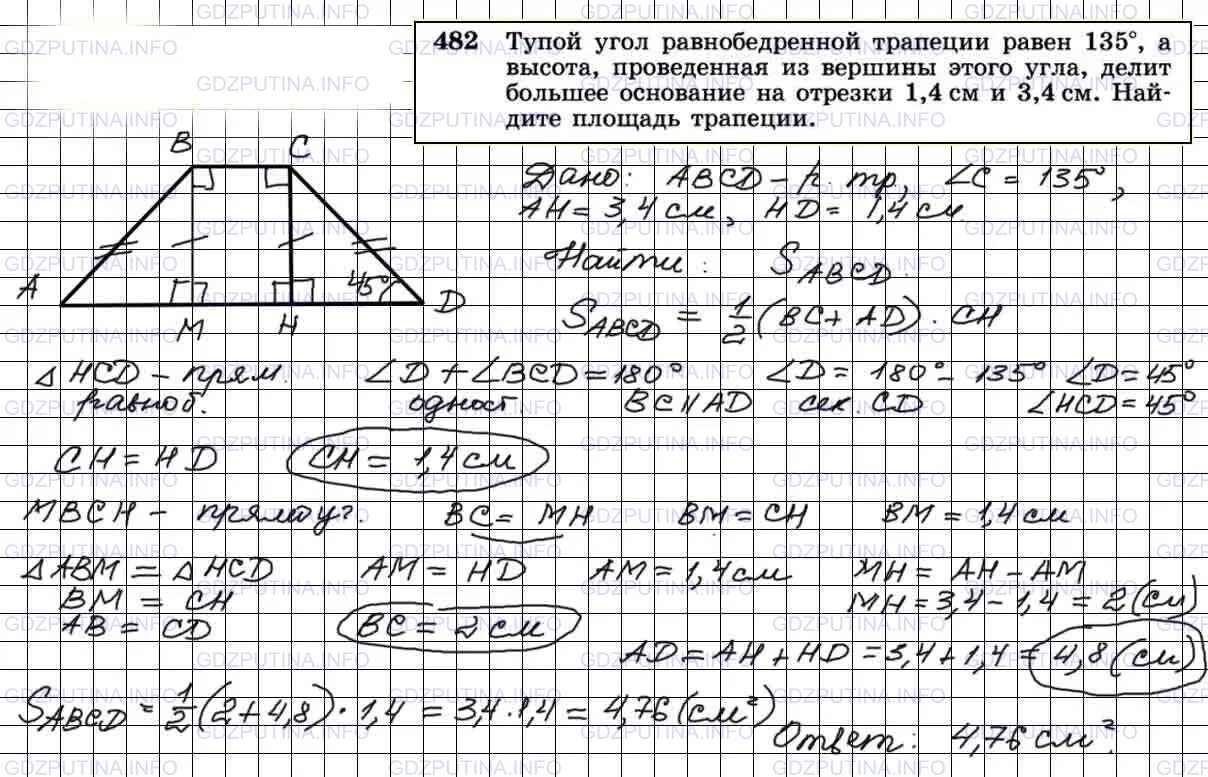 482 Тупой угол равнобедренной трапеции равен 135°, а
высота, проведенная из вершины этого угла, делит
большее основание на отрезки 1,4 см и 3,4 см. Най-
дите площадь трапеции.
B C
A M H D 45°
Дано: ABCD – р. тр, ∠C = 135°,
AH = 3,4 см, HD = 1,4 см
Найти: S ABCD.
S ABCD = 1/2 (BC + AD) · CH
△ HCD – прям. ∠D + ∠BCD = 180° ∠D = 180° – 135° ∠D = 45°
равноб. одност. BC || AD сек. CD ∠HCD = 45°
CH = HD CH = 1,4 см
MBCH – прямоуг. BC = MH BM = CH BM = 1,4 см
△ ABM = △ HCD AM = HD AM = 1,4 см MH = AH – AM
BM = CH MH = 3,4 – 1,4 = 2 (см)
AB = CD BC = 2 см
AD = AH + HD = 3,4 + 1,4 = 4,8 (см)
S ABCD = 1/2 (2 + 4,8) · 1,4 = 3,4 · 1,4 = 4,76 (см²)
Ответ: 4,76 см².
GDZPUTINA.INFO